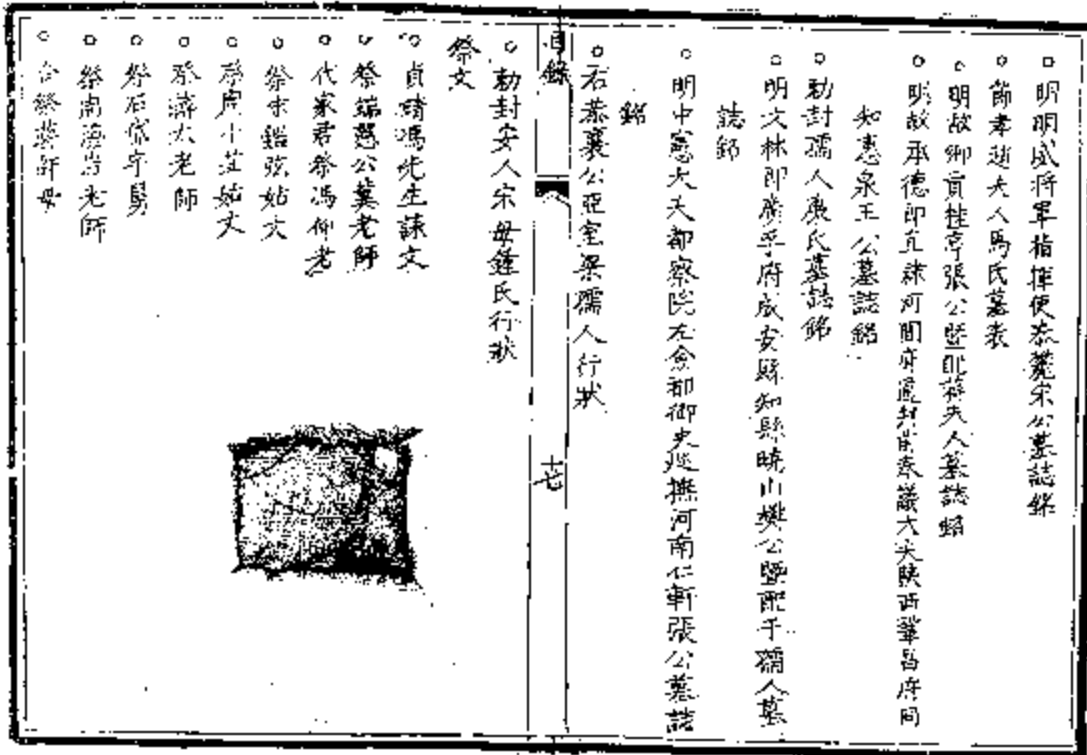 明明威將軍指揮使泰麓宋公墓誌銘
節孝趙夫人馬氏墓表
明故鄉貢桂亭張公暨配蔣夫人墓誌銘
明故承德郎直隸河間府通判前奉議大夫陝西鞏昌府同
知惠泉王公墓誌銘
勅封孺人康氏墓誌銘
明文林郎廣平府成安縣知縣曉山樊公暨配于孺人墓
誌銘
明中憲大夫都察院左僉都御史巡撫河南仁軒張公墓誌
銘
石恭襄公亞室梁孺人行狀
目錄
十七
勅封安人宋母鍾氏行狀
祭文
貞靖馮先生誄文
祭端愍公冀老師
代家君祭馮仰老
祭宋鑑弦姑丈
祭周小莊姑丈
祭濟太老師
祭石岱宇舅
祭南海岑老師
合祭龔師母